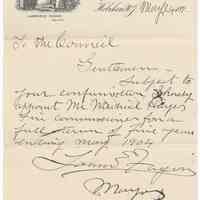 Hoboken NJ May 1st
To the Council
Gentlemen
Subject to
your confirmation I hereby
appoint Mr Michael Hayes
Fire commissioner for a
full term of five years
ending May 1904
Mayor